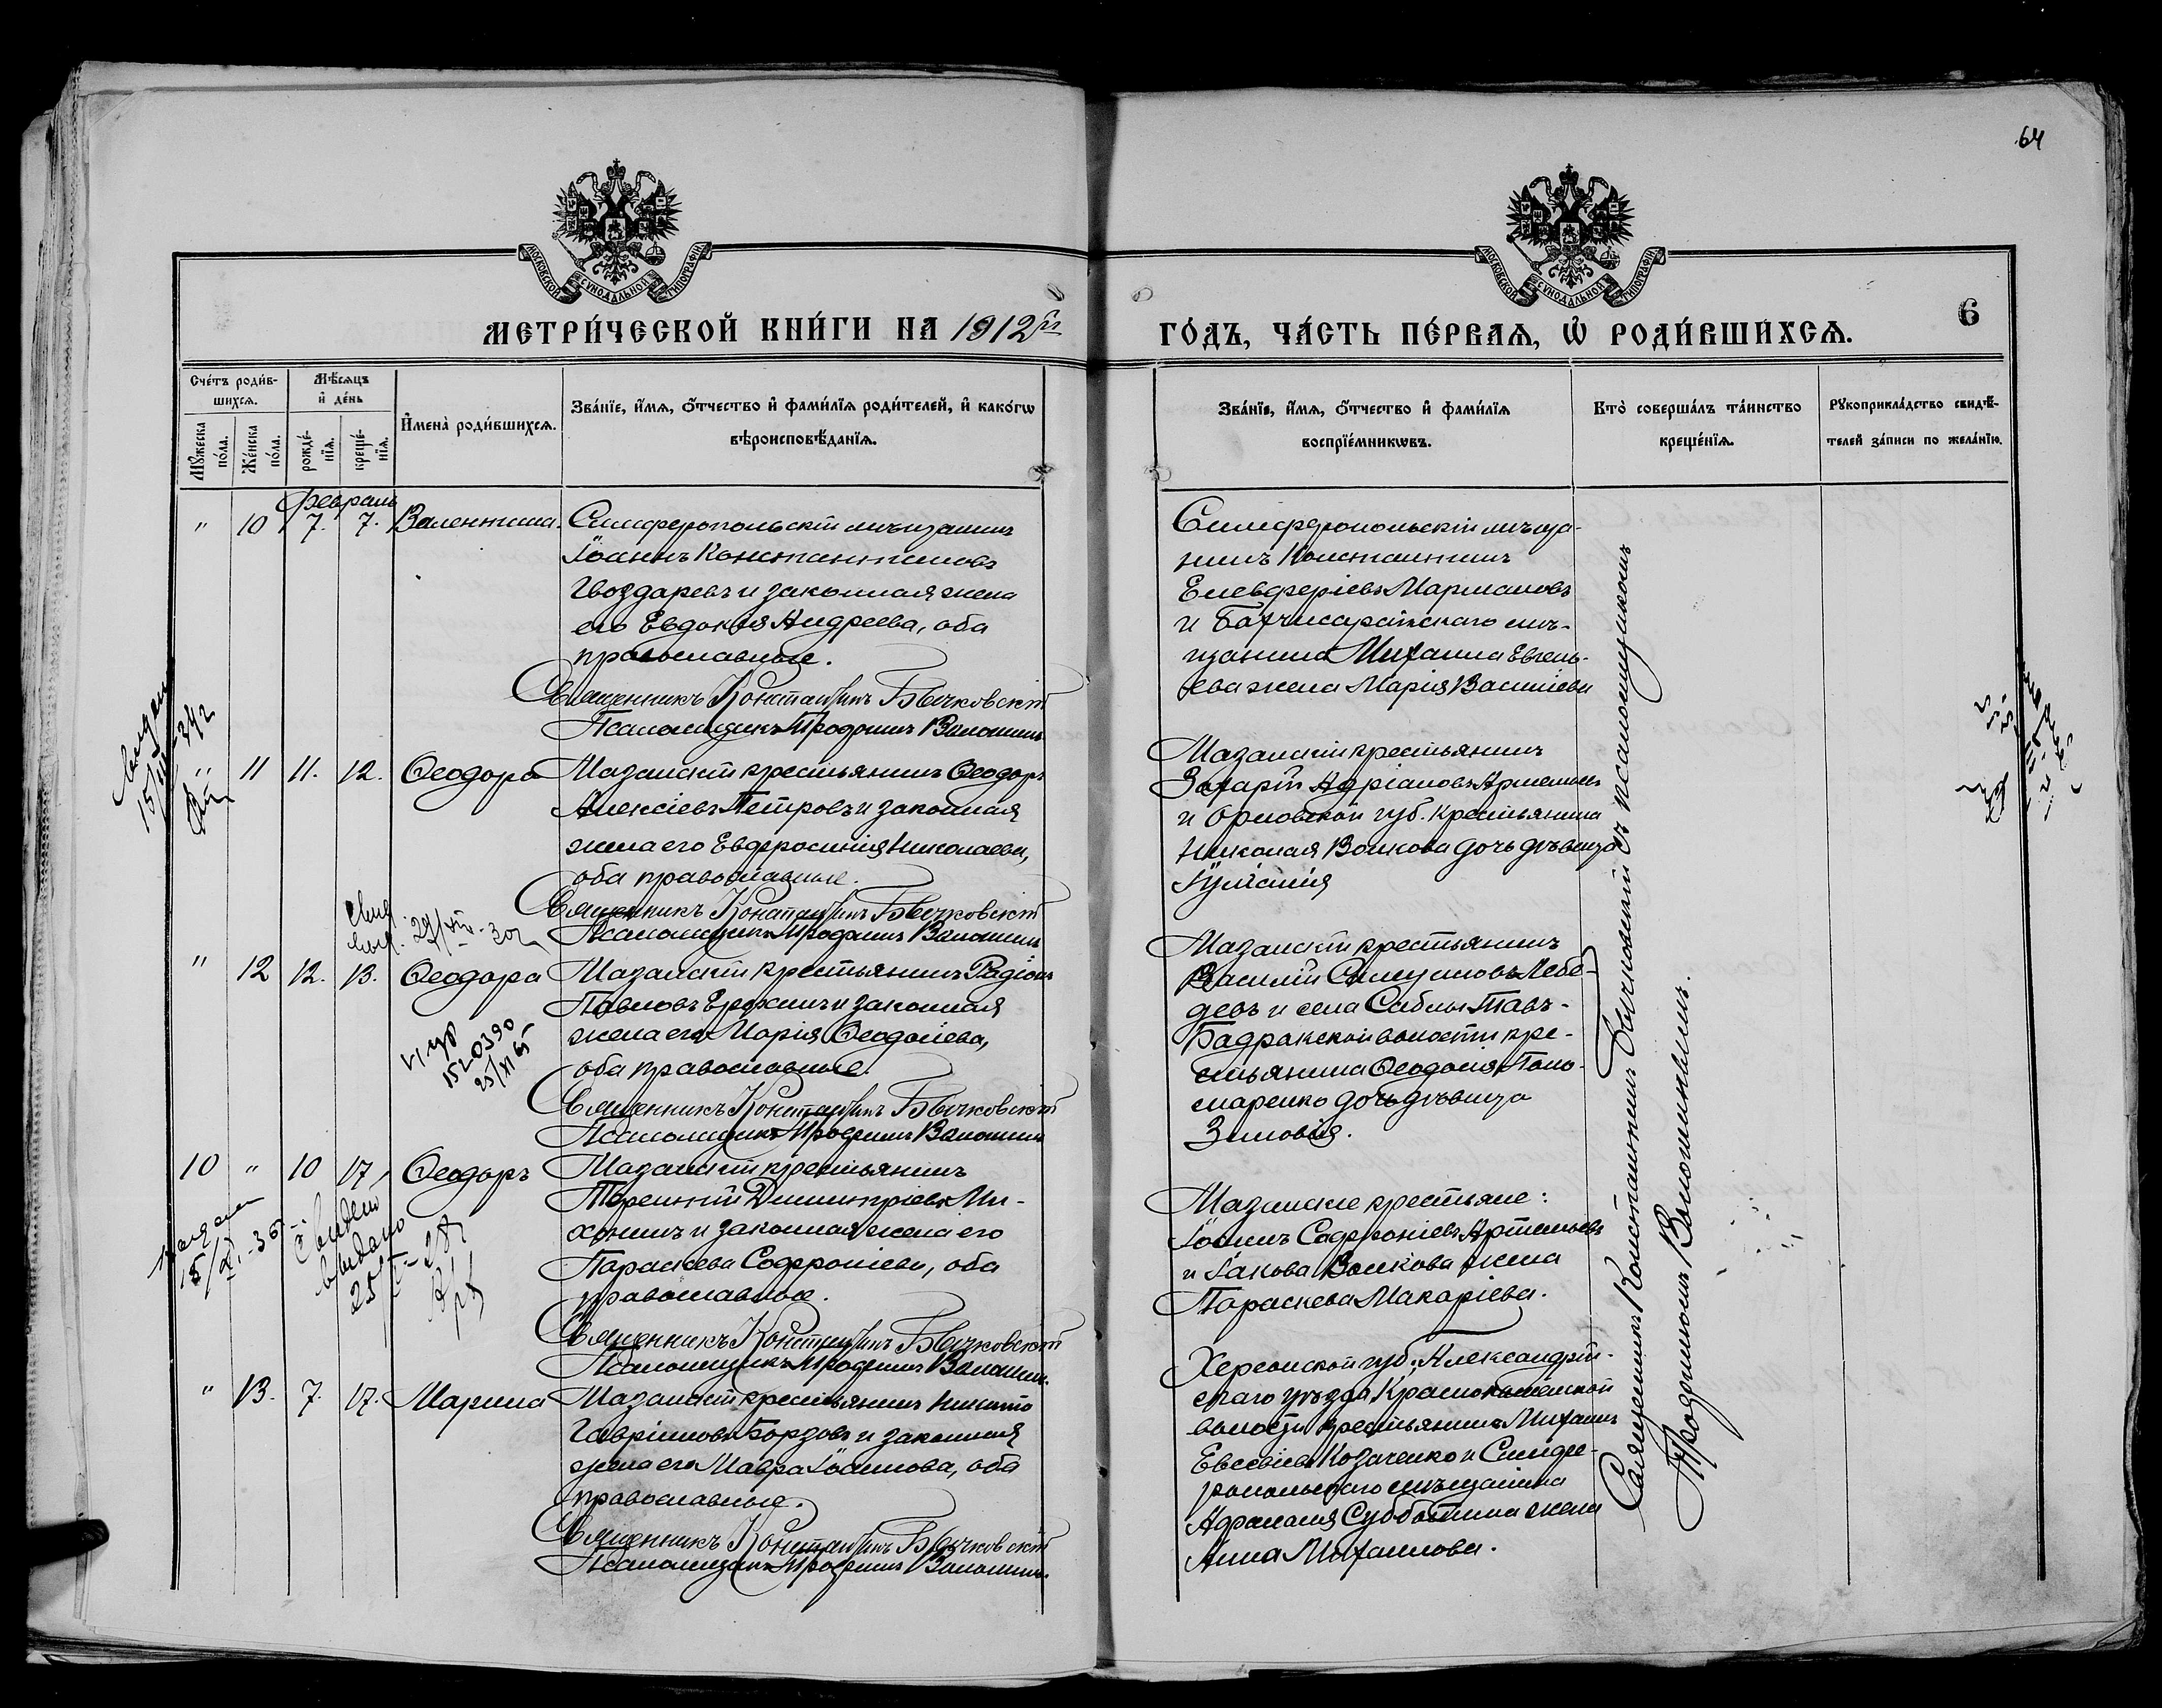 64
МОСКОВСКОЙ СѴНОДАЛЬНОЙ ТИПОГРАФІИ
МОСКОВСКОЙ СѴНОДАЛЬНОЙ ТИПОГРАФІИ
МЕТРИ́ЧЕСКОЙ КНИ́ГИ НА 1912й
ГО́ДЪ, ЧА́СТЬ ПЕ́РВАѦ, Ѡ҆ РОДИ́ВШИХСѦ.
6
Сче́тъ роди́в-
шихсѧ.
Мѣ́сѧцъ
и҆ де́нь
Мꙋ́жеска по́ла.
Же́нска по́ла.
рожде́-
нїѧ.
креще́-
нїѧ.
И҆мена̀ роди́вшихсѧ.
Зва́нїе, и҆́мѧ, ѻ҆́тчество и҆ фами́лїѧ роди́телей, и҆ како́гѡ
вѣроисповѣ́данїѧ.
Зва́нїе, и҆́мѧ, ѻ҆́тчество и҆ фами́лїѧ
воспрїе́мникѡвъ.
Кто̀ соверша́лъ та́инство
креще́нїѧ.
Рꙋкоприкла́дство свидѣ́-
телей за́писи по жела́нїю.
Февраль
" 10 7. 7. Валентина.
Симферопольскій мѣщанинъ
Іоаннъ Константиновъ
Гвоздаревъ и законная жена
его Евдокія Андреева, оба
православные.
Священникъ Константинъ Бычковскій
Псаломщикъ Трофимъ Волошинъ
Симферопольскій мѣща-
нинъ Константинъ
Елевферіевъ Мармановъ
и Бахчисарайскаго мѣ-
щанина Михаила Евгень-
ева жена Марія Василіева
" 11 11. 12. Ѳеодора
Мазанскій крестьянинъ Ѳеодоръ
Алексіевъ Петровъ и законная
жена его Евфросинія Николаева,
оба православные.
Священникъ Константинъ Бычковскій
Псаломщикъ Трофимъ Волошинъ
Мазанскій крестьянинъ
Захарій Адріановъ
и Орловской губ. крестьянина
Николая Волкова дочь дѣвица
Іуліанія
" 12 12. 13. Ѳеодора
Мазанскій крестьянинъ Радіонъ
Павловъ и законная
жена его Марія Ѳеодосіева,
оба православные.
Священникъ Константинъ Бычковскій
Псаломщикъ Трофимъ Волошинъ
Мазанскій крестьянинъ
Василій Лебе-
девъ и села Саблы Тавъ-
Бадракской волости кре-
стьянина Ѳеодосія Поно-
маренко дочь дѣвица
Зиновія.
152 0390
25/XI 65
10 " 10 17 Ѳеодоръ
Мазанскій крестьянинъ
Терентій Димитріевъ Ми-
хонинъ и законная жена его
Параскева Софроніева, оба
православные.
Священникъ Константинъ Бычковскій
Псаломщикъ Трофимъ Волошинъ.
Мазанские крестьяне:
Іоаннъ Софроніевъ Артемьевъ
и Іакова Волкова жена
Параскева Макаріева.
" 13. 7. 17. Марина
Мазанскій крестьянинъ Никита
Гавріиловъ Борзовъ и законная
жена его Мавра Іоаннова, оба
православные.
Священникъ Константинъ Бычковскій
Псаломщикъ Трофимъ Волошинъ.
Херсонской губ. Александрій-
скаго уѣзда Краснокаменской
волости крестьянинъ Михаилъ
Евсевіевъ Козаченко и Симфе-
ропольскаго мѣщанина
Афанасія Субботина жена
Анна Михаилова.
Священникъ Константинъ Бычковскій съ псаломщикомъ
Трофимомъ Волошинымъ.